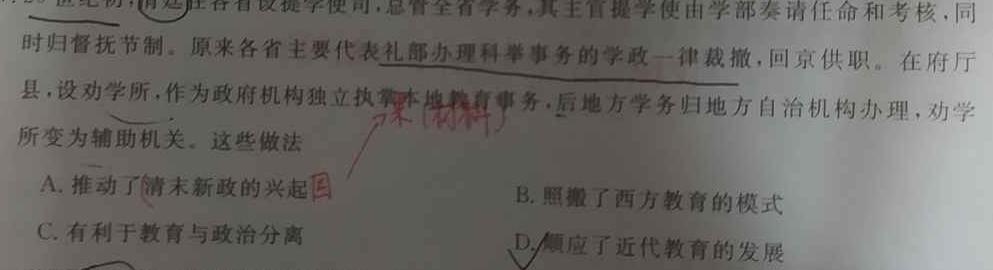 世纪初,清廷在各省设提学使司,总管全省学务,其主官提学使由学部奏请任命和考核,同
时归督抚节制。原来各省主要代表礼部办理科举事务的学政一律裁撤,回京供职。在府厅
县,设劝学所,作为政府机构独立执掌本地教育事务,后地方学务归地方自治机构办理,劝学
所变为辅助机关。这些做法
A. 推动了清末新政的兴起
B. 照搬了西方教育的模式
C. 有利于教育与政治分离
D. 顺应了近代教育的发展